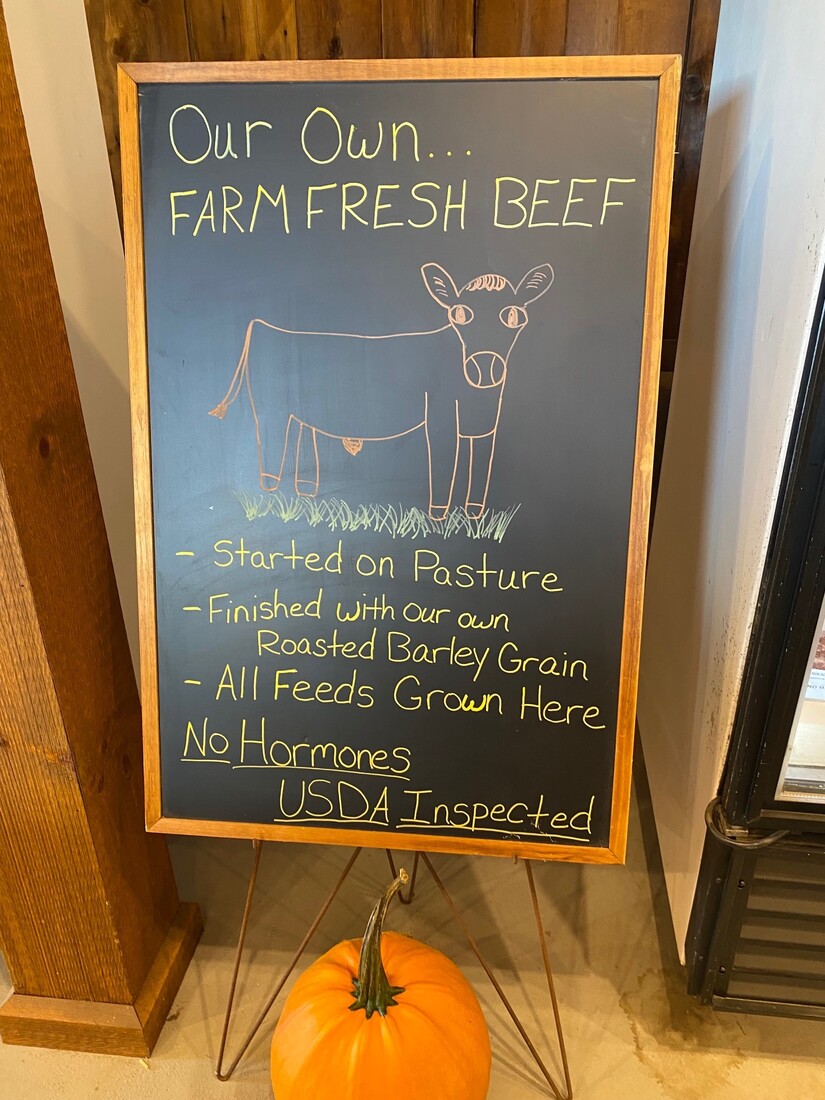 Our Own...
FARM FRESH BEEF
- Started on Pasture
- Finished with our own
Roasted Barley Grain
- All Feeds Grown Here
No Hormones
USDA Inspected